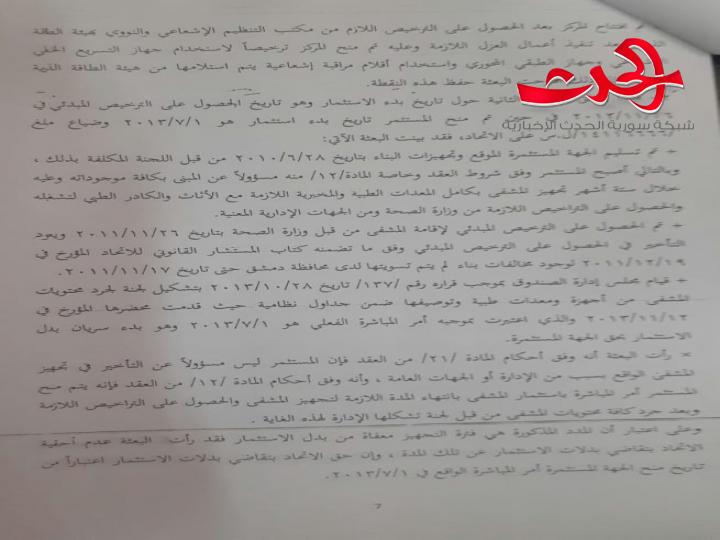 تم افتتاح المركز بعد الحصول على الترخيص اللازم من مكتب التنظيم الإشعاعي والنووي بهيئة الطاقة
بعد تنفيذ أعمال العزل اللازمة وعليه تم منح المركز ترخيصاً لاستخدام جهاز التسريع الخطي
وجهاز الطبقي المحوري واستخدام أقلام مراقبة إشعاعية يتم استلامها من هيئة الطاقة الذرية
البعثة حفظ هذه النقطة.
الثانية حول تاريخ بدء الاستثمار وهو تاريخ الحصول على الترخيص المبدئي في
في حين تم منح المستثمر تاريخ بدء استثمار هو ٢٠١٣/٧/١ وضياع مبلغ
ل.س على الاتحاد، فقد بينت البعثة الآتي:
+ تم تسليم الجهة المستثمرة الموقع وتجهيزات البناء بتاريخ ٢٠١٠/٦/٢٨ من قبل اللجنة المكلفة بذلك ،
وبالتالي أصبح المستثمر وفق شروط العقد وخاصة المادة/١٢/ منه مسؤولاً عن المبنى بكافة موجوداته وعليه
خلال ستة أشهر تجهيز المشفى بكامل المعدات الطبية والمخبرية اللازمة مع الأثاث والكادر الطبي لتشغيله
والحصول على التراخيص اللازمة من وزارة الصحة ومن الجهات الإدارية المعنية.
+ تم الحصول على الترخيص المبدئي لإقامة المشفى من قبل وزارة الصحة بتاريخ ٢٠١١/١١/٢٦ ويعود
التأخير في الحصول على الترخيص المبدئي وفق ما تضمنه كتاب المستشار القانوني للاتحاد المؤرخ في
٢٠١١/١٢/١٩ لوجود مخالفات بناء لم يتم تسويتها لدى محافظة دمشق حتى تاريخ ٢٠١١/١١/١٧.
+ قيام مجلس إدارة الصندوق بموجب قراره رقم /١٣٧/ تاريخ ٢٠١٣/١٠/٢٨ بتشكيل لجنة لجرد محتويات
المشفى من أجهزة ومعدات طبية وتوصيفها ضمن جداول نظامية حيث قدمت محضرها المؤرخ في
٢٠١٣/١١/١٢ والذي اعتبرت بموجبه أمر المباشرة الفعلي هو ٢٠١٣/٧/١ وهو بدء سريان بدل
الاستثمار بحق الجهة المستثمرة.
× رأت البعثة أنه وفق أحكام المادة /٢١/ من العقد فإن المستثمر ليس مسؤولاً عن التأخير في تجهيز
المشفى الواقع بسبب من الإدارة أو الجهات العامة ، وأنه وفق أحكام المادة /١٢/ من العقد فإنه يتم منح
المستثمر أمر المباشرة باستثمار المشفى بانتهاء المدة اللازمة لتجهيز المشفى والحصول على التراخيص اللازمة
وبعد جرد كافة محتويات المشفى من قبل لجنة تشكلها الإدارة لهذه الغاية .
وعلى اعتبار أن المدد المذكورة هي فترة التجهيز معفاة من بدل الاستثمار فقد رأت البعثة عدم أحقية
الاتحاد بتقاضي بدلات الاستثمار عن تلك المدة ، وإن حق الاتحاد بتقاضي بدلات الاستثمار اعتباراً من
تاريخ منح الجهة المستثمرة أمر المباشرة الواقع في ٢٠١٣/٧/١.
٧
الحدث
شبكة سورية الحدث الإخبارية